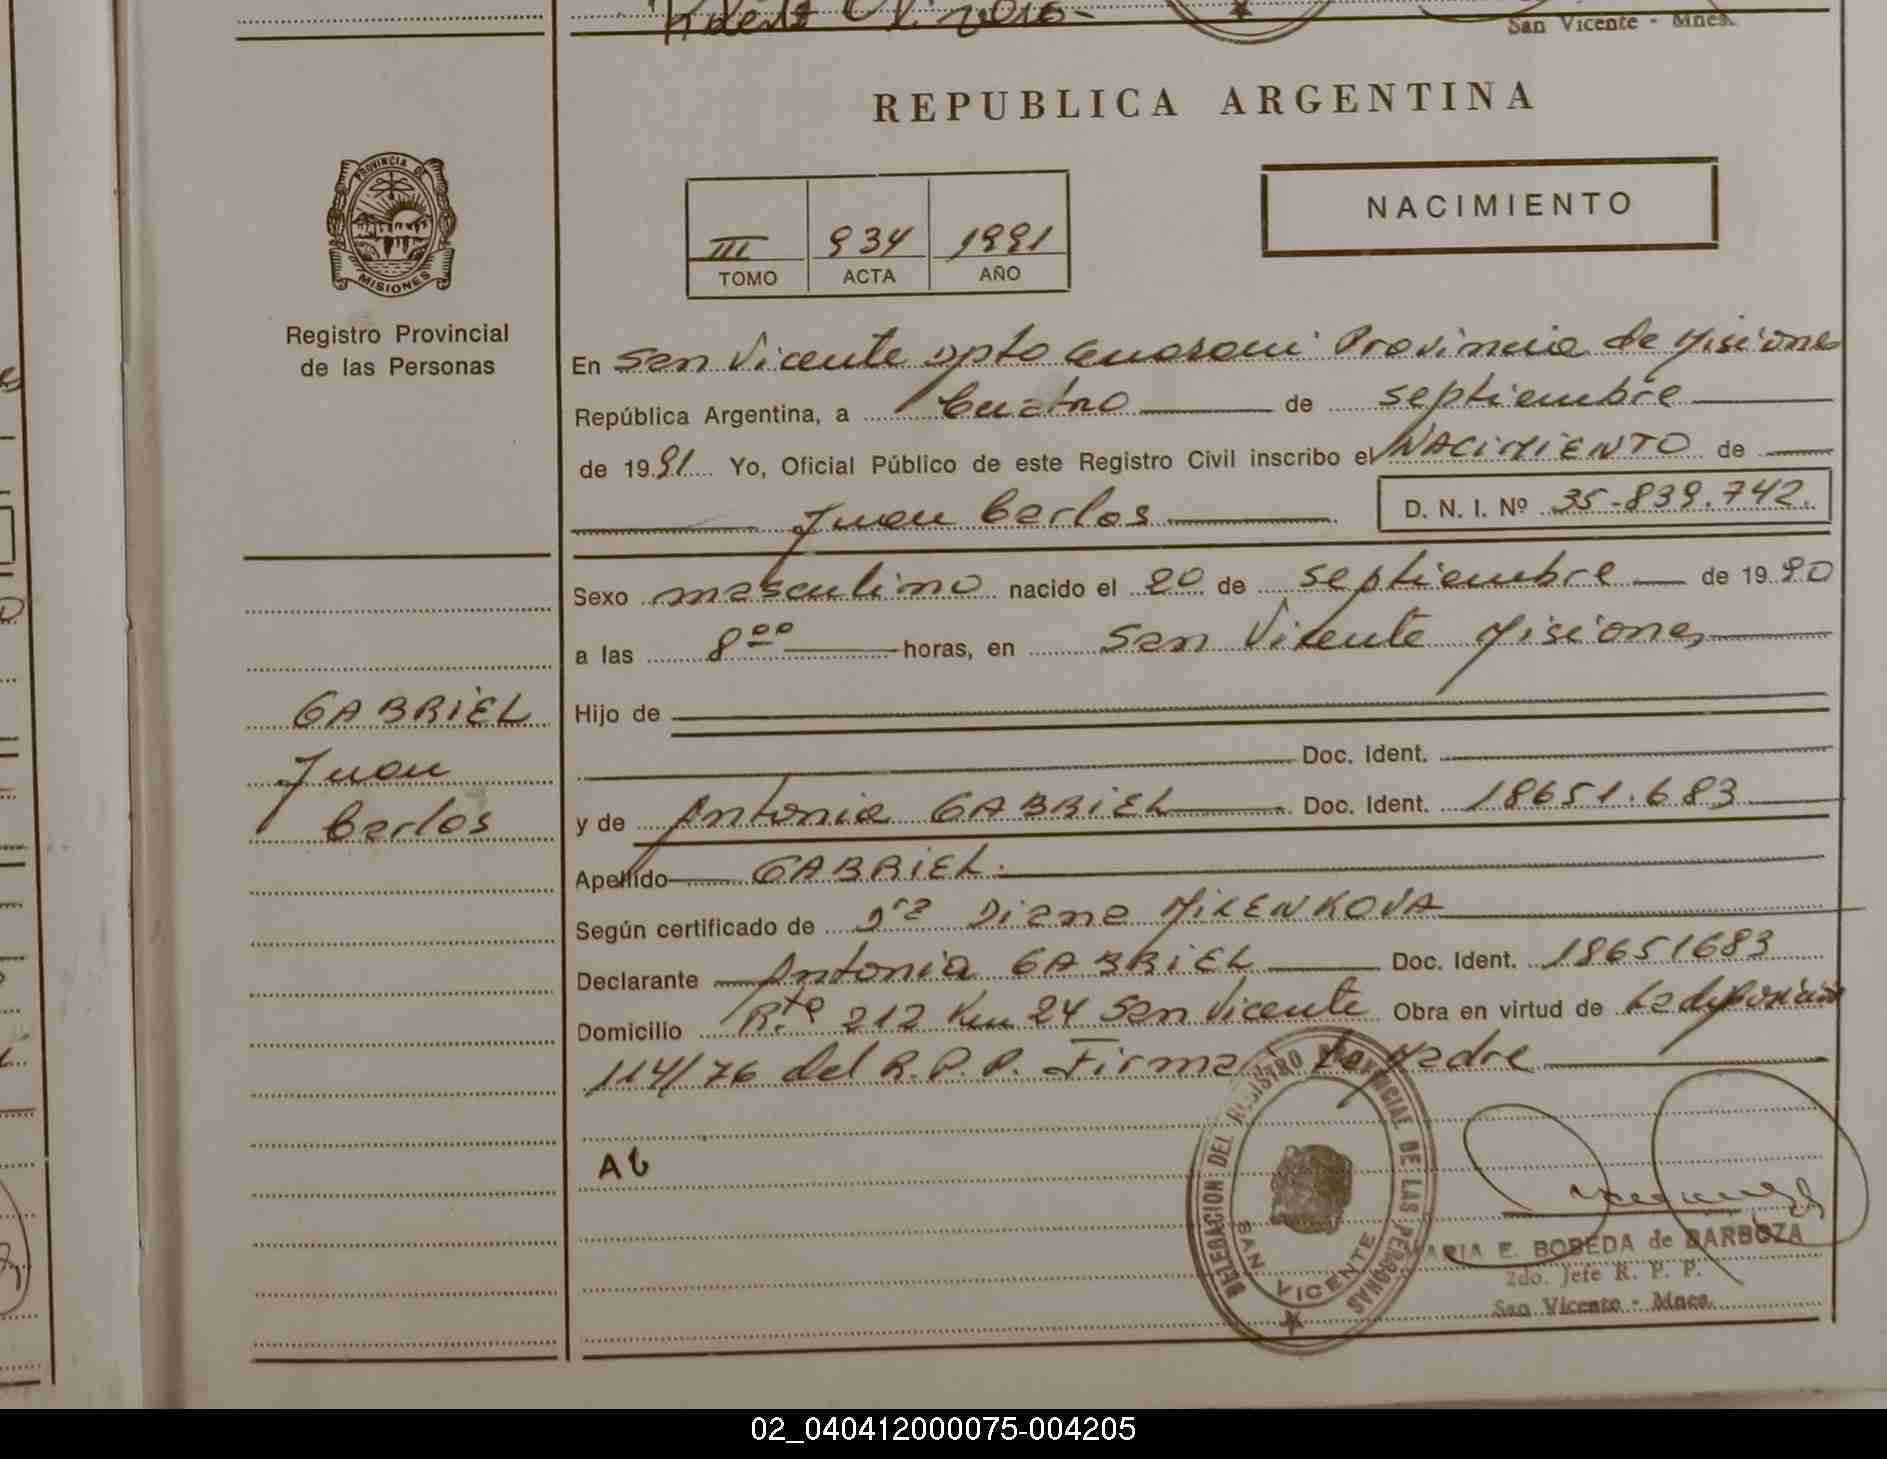 San Vicente - Mnes.
REPUBLICA ARGENTINA
PROVINCIA DE
MISIONES
Registro Provincial
de las Personas
III 934 1991
TOMO ACTA AÑO
NACIMIENTO
En San Vicente Dpto Guarani Provincia de Misiones
República Argentina, a Cuatro de septiembre
de 1991 Yo, Oficial Público de este Registro Civil inscribo el NACIMIENTO de
Juan Carlos D. N. I. Nº 35-839.742.
Sexo masculino nacido el 20 de septiembre de 1990
a las 8 00 horas, en San Vicente Misiones
GABRIEL
Juan
Carlos
Hijo de
Doc. Ident.
y de Antonia GABRIEL Doc. Ident. 18651.683
Apellido GABRIEL.
Según certificado de Dra Diana MILENKOVA
Declarante Antonia GABRIEL Doc. Ident. 18651683
Domicilio Rta 212 Km 24 San Vicente Obra en virtud de La disposición
114/76 del R.P.P. Firma La Madre
AC
DELEGACION DEL REGISTRO PROVINCIAL DE LAS PERSONAS
SAN VICENTE
MARIA E. BOBEDA de BARBOZA
2do. Jefe R. P. P.
San Vicente - Mnes.
02_040412000075-004205